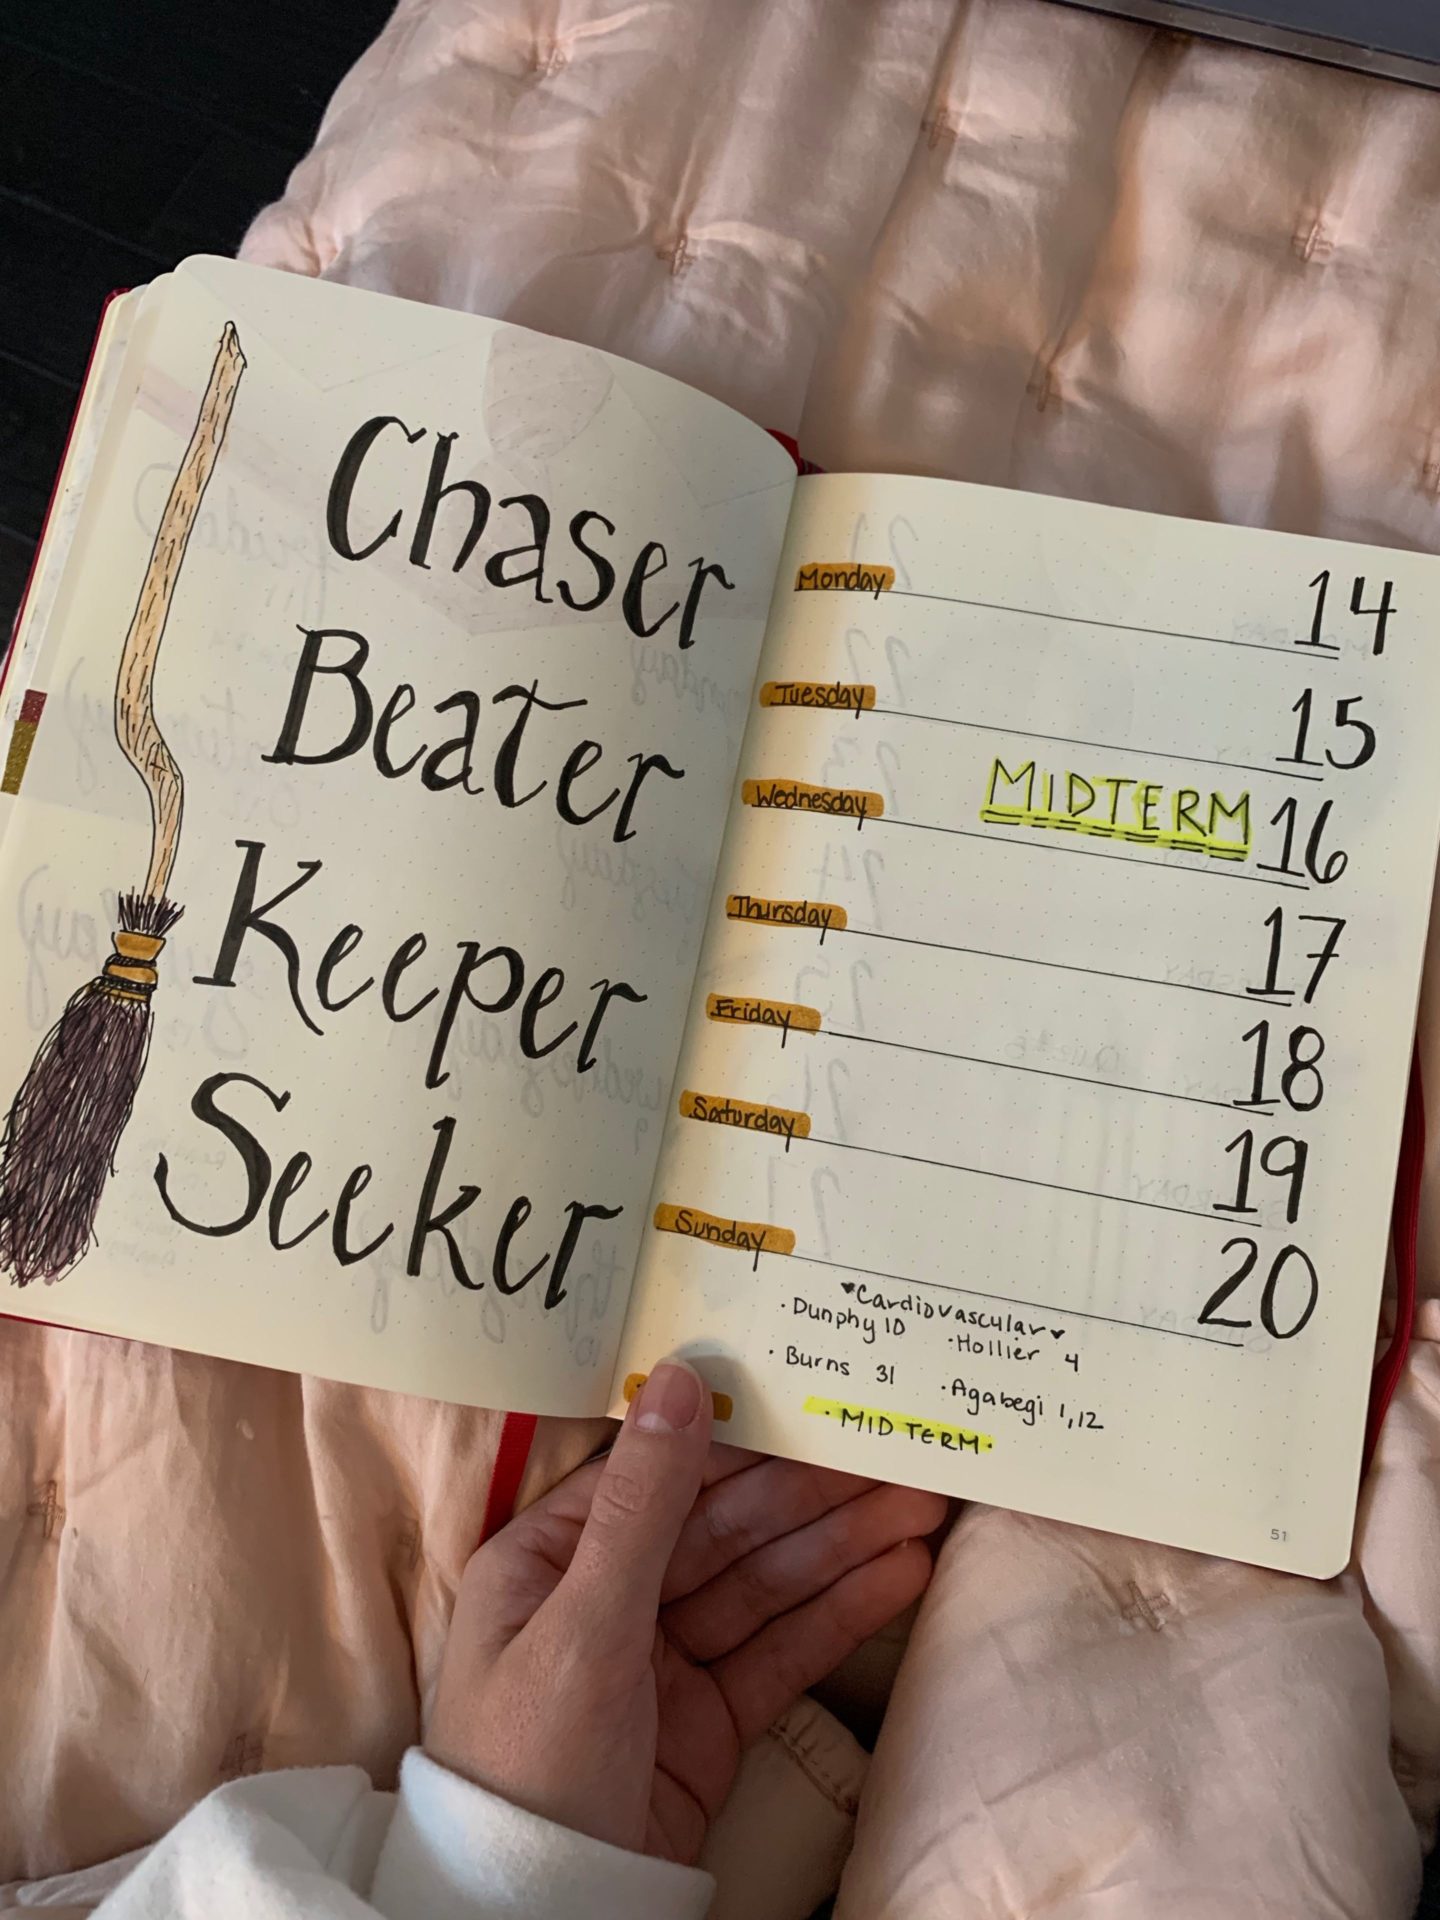 Chaser
Beater
Keeper
Seeker
Monday 14
Tuesday 15
Wednesday MIDTERM 16
Thursday 17
Friday 18
Saturday 19
Sunday 20
♥Cardiovascular♥
·Dunphy 10 ·Hollier 4
·Burns 31 ·Agabegi 1,12
·MIDTERM·
51